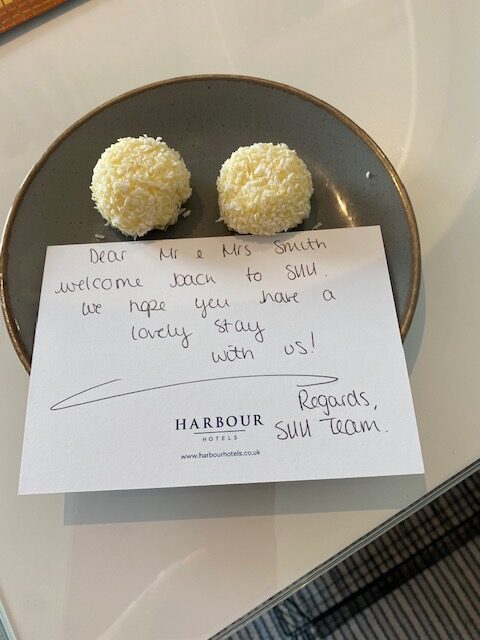 Dear Mr & Mrs Smith
welcome back to SHH.
We hope you have a
lovely stay
with us!
Regards,
SHH Team.
HARBOUR
HOTELS
www.harbourhotels.co.uk